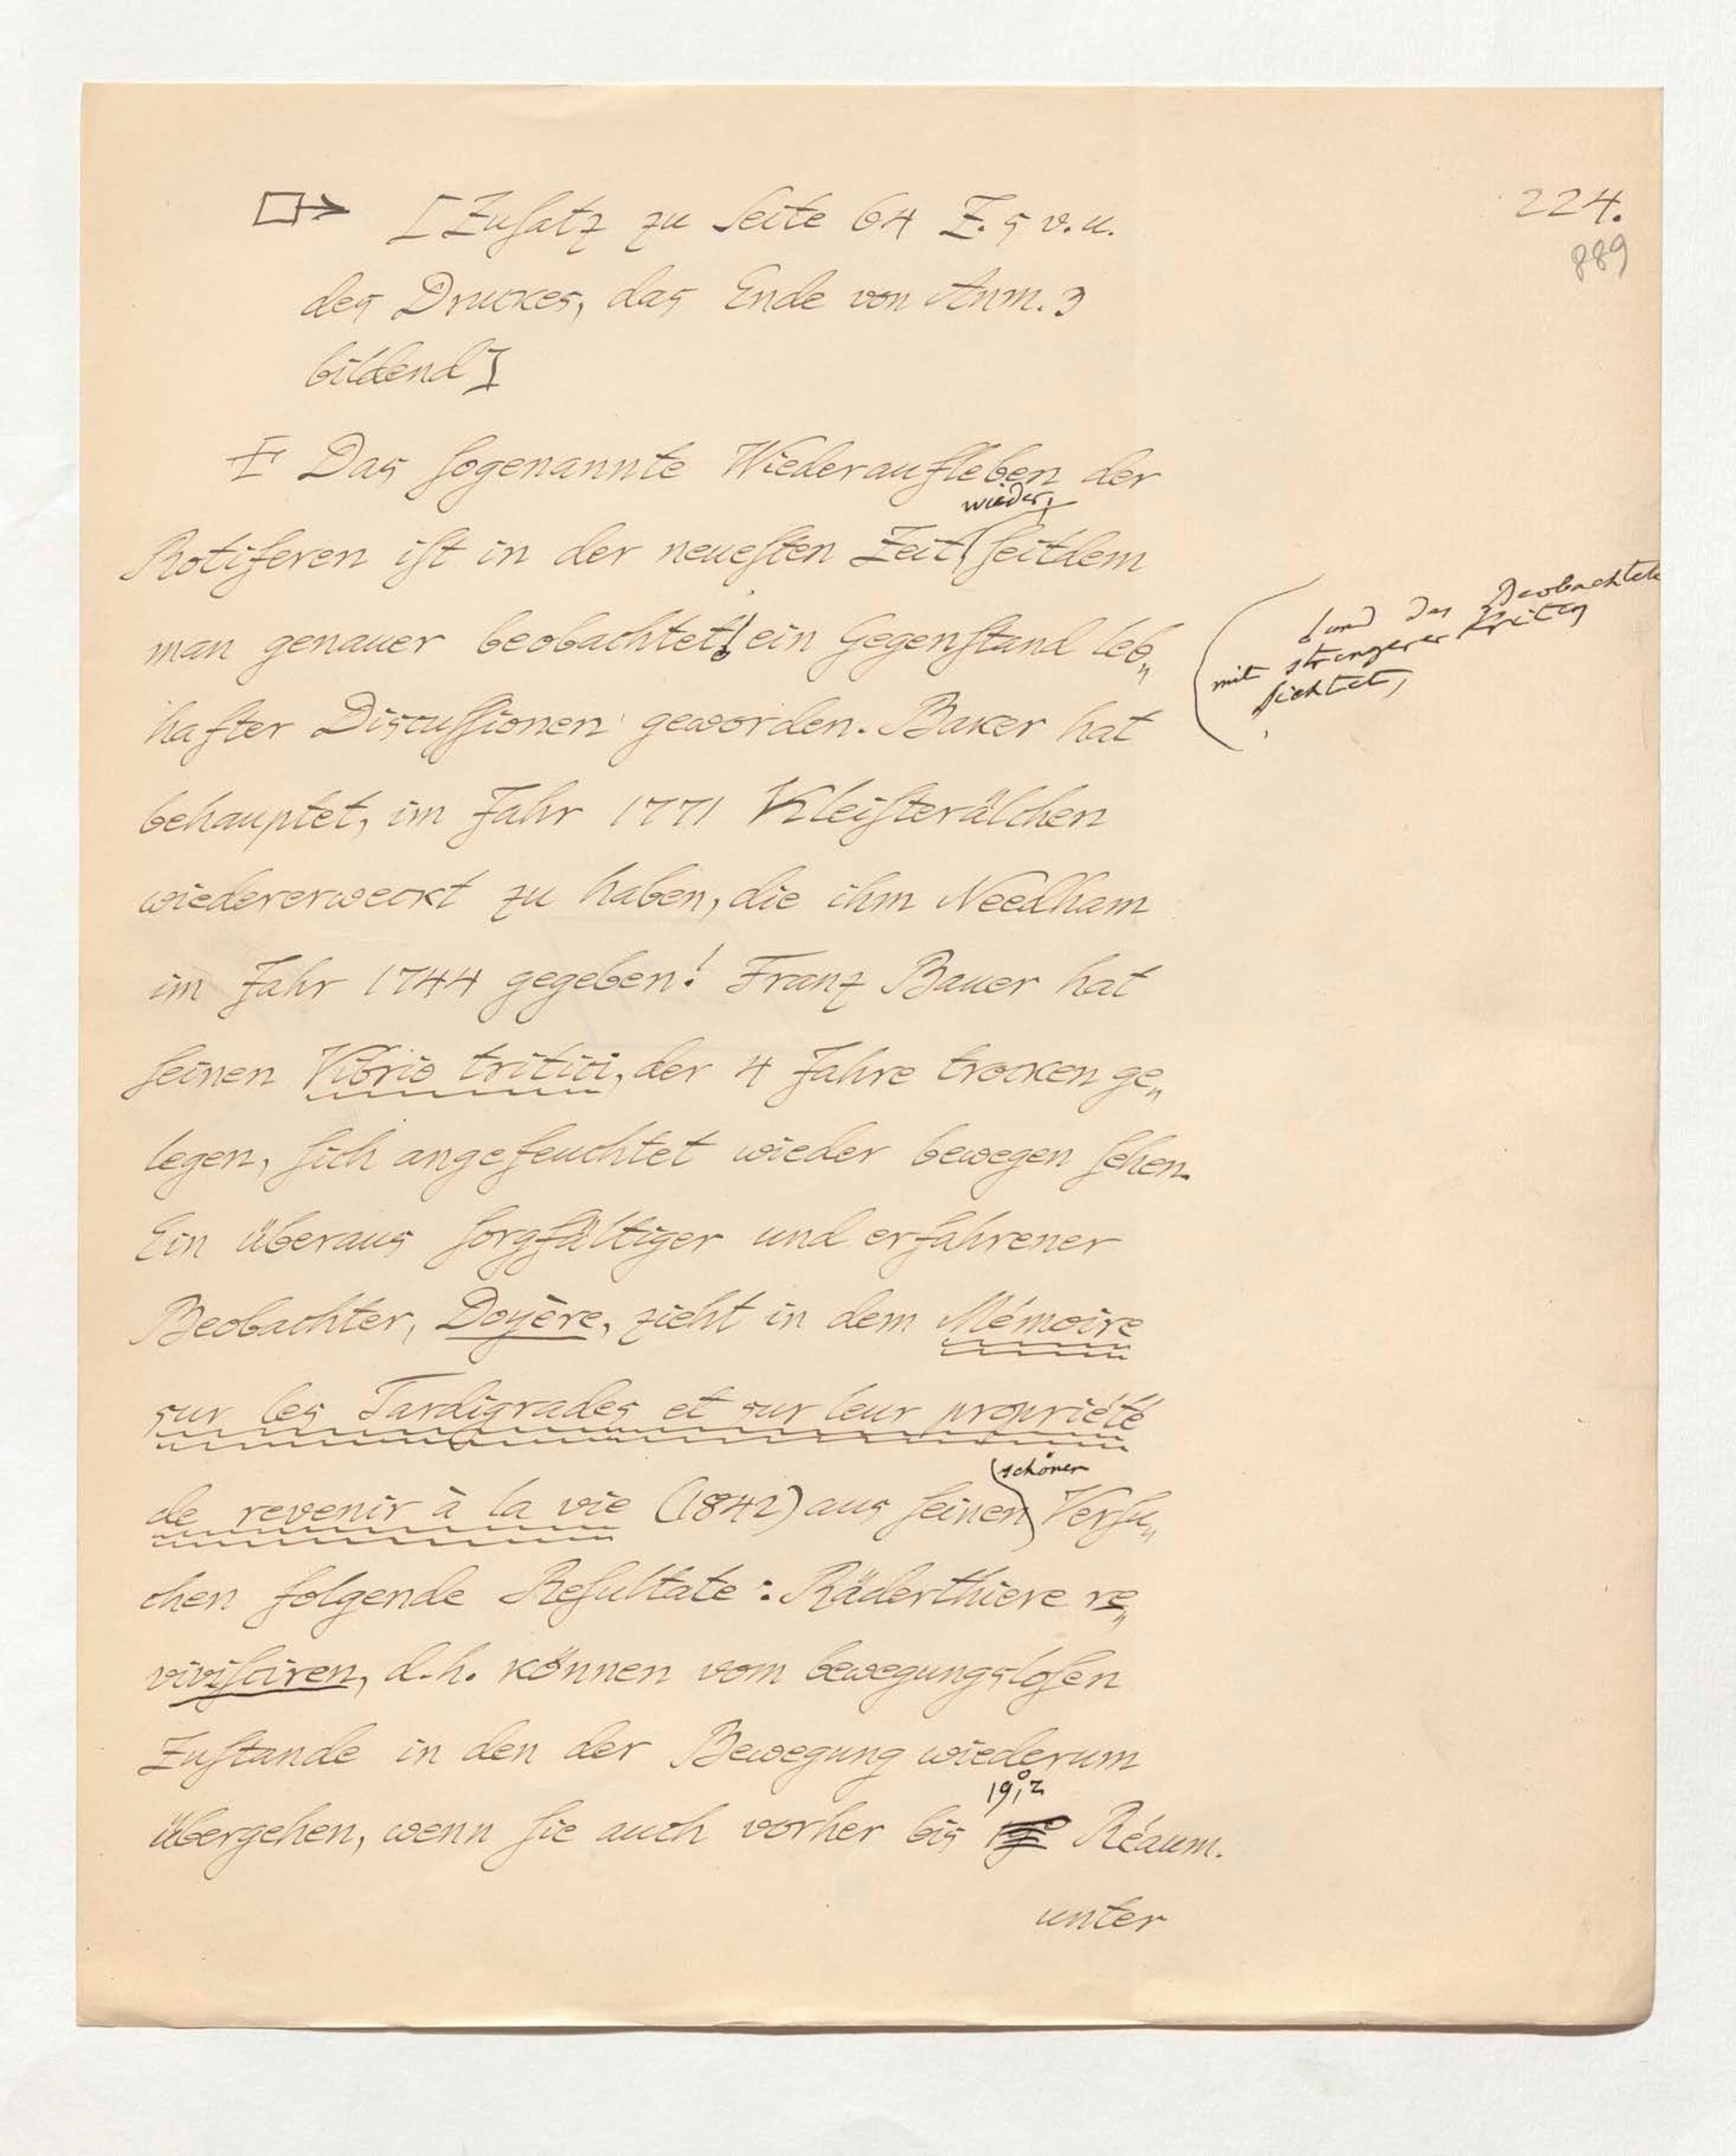 224.
889
[Zuſatz zu Seite 64 Z. 5 v. u.
des Druckes, das Ende von Anm. 3
bildend]
Das ſogenannte Wiederaufleben der
wieder,
Rotiferen iſt in der neueſten Zeit ſeitdem
man genauer beobachtet, ein Gegenſtand leb„
und das Beobachtete
mit strengerer Kritik
sichtet,
hafter Discuſſionen geworden. Baker hat
behauptet, im Jahr 1771 Kleiſterälchen
wiedererweckt zu haben, die ihm Needham
im Jahr 1744 gegeben! Franz Bauer hat
ſeinen Vibrio tritici, der 4 Jahre trocken ge„
legen, ſich angefeuchtet wieder bewegen ſehen.
Ein überaus ſorgfältiger und erfahrener
Beobachter, Doyère, zieht in dem Mémoire
sur les Tardigrades et sur leur propriété
schönen
de revenir à la vie (1842) aus ſeinen Verſu„
chen folgende Reſultate: Räderthiere re„
viviſciren, d. h. können vom bewegungsloſen
Zuſtande in den der Bewegung wiederum
19°,2
übergehen, wenn ſie auch vorher bis Réaum.
unter